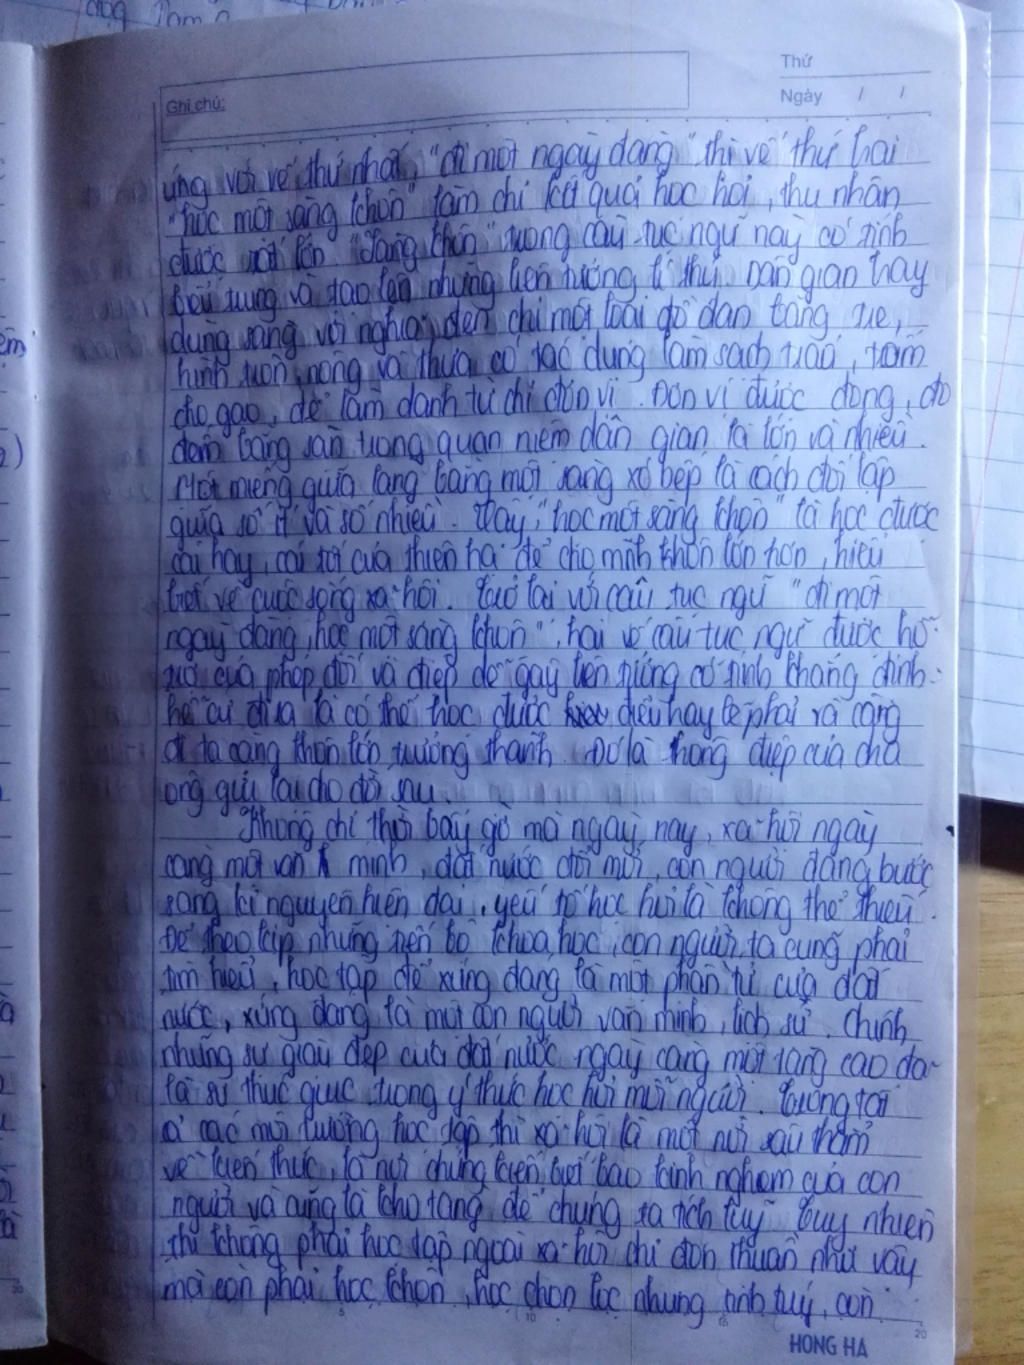 Thứ
Ghi chú:
Ngày / /
ứng với vế thứ nhất, "đi một ngày đàng" thì vế thứ hai
"học một sàng khôn" tầm chỉ kết quả học hỏi, thu nhận
được rất lớn "Sàng khôn" trong câu tục ngữ này có tính
biểu trưng và tạo lên những liên tưởng lí thú. Dân gian hay
dùng sàng với nghĩa đen chỉ một loại đồ đan bằng tre,
hình tròn, nông và thưa có tác dụng làm sạch trấu, tấm
cho gạo, để làm danh từ chỉ đơn vị. Đơn vị được đong, đo
đếm bằng sàn trong quan niệm dân gian là lớn và nhiều.
Một miếng giữa làng bằng một sàng xó bếp là cách đối lập
giữa số ít và số nhiều. Vậy, "học một sàng khôn" là học được
cái hay, cái tốt của thiên hạ để cho mình khôn lớn hơn, hiểu
biết về cuộc sống xã hội. Trở lại với câu tục ngữ "đi một
ngày đàng, học một sàng khôn", hai vế câu tục ngữ được hỗ
trợ của phép đối và điệp để gây lên tiếng có tính khẳng định:
hễ cứ đi là có thể học được điều hay lẽ phải và càng
đi ta càng khôn lớn, trưởng thành. Đó là thông điệp của cha
ông gửi lại cho đời sau.
Không chỉ thời bấy giờ mà ngày nay, xã hội ngày
càng một văn minh, đất nước đổi mới, con người đang bước
sang kỉ nguyên hiện đại, yếu tố học hỏi là không thể thiếu.
Để theo kịp những tiến bộ khoa học, con người ta cũng phải
tìm hiểu, học tập để xứng đáng là một phần tử của đất
nước, xứng đáng là một con người văn minh, lịch sử. Chính
những sự giàu đẹp của đất nước ngày càng một tăng cao đã
là sự thúc giục trong ý thức học hỏi mỗi người. Tương tới
ở các môi trường học tập thì xã hội là một nơi sâu thẳm
về kiến thức, là nơi chứng kiến biết bao kinh nghệm của con
người và cũng là kho tàng để chúng ta tích luỹ. Tuy nhiên
thì không phải học tập ngoài xã hội chỉ đơn thuần như vậy
mà còn phải học khôn, học chọn lọc nhưng tinh tuý, còn
HONG HA